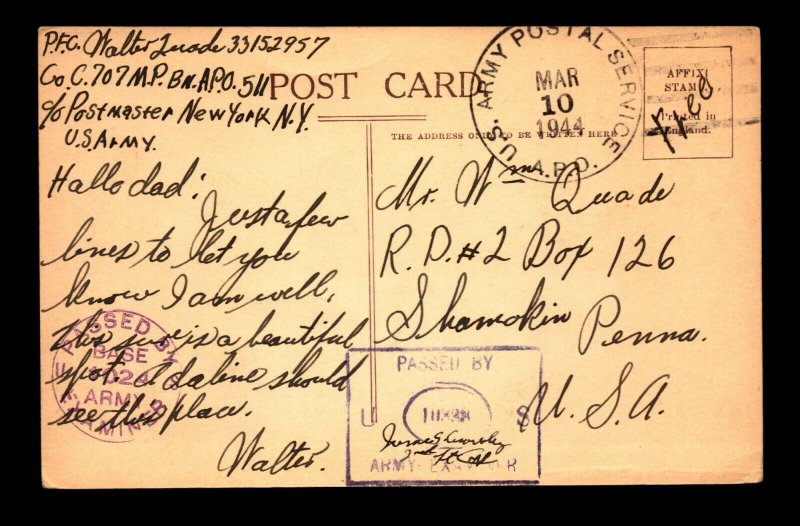 P.F.C. Walter Quade 33152957
Co. C. 707 M.P. Bn. A.P.O. 511
c/o Postmaster New York N.Y.
U.S. Army.
POST CARD
THE ADDRESS ONLY TO BE WRITTEN HERE
U.S. ARMY POSTAL SERVICE
MAR
10
1944
A.P.O.
AFFIX
STAMP
Printed in
England.
Free
Hallo dad:
Just a few
lines to let you
know I am well,
this sure is a beautiful
spot. Adaline should
see this place.
Walter.
Mr. Wm Quade
R.D.#2 Box 126
Shamokin Penna.
U.S.A.
PASSED BY
BASE
1024
ARMY
EXAMINER
PASSED BY
U S
ARMY EXAMINER